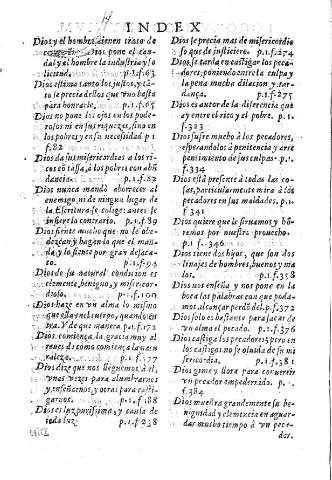 INDEX
Dios y el hombre tienen trato de
Dios pone el cau-
dal y el hombre la industria y so
licitud. p.1.f.63
Dios estima tanto los justos, y tā-
to se precia dellos que vno basta
para honrarle. p.1.f.65
Dios no pone los ojos en los pode-
rosos ni en sus riquezas, sino en
los pobres y en su necesidad p 1
f.82
Dios da sus misericordias a los ri-
cos cō tassa, à los pobres con abū
dancia. p.1.f.82
Dios nunca mandò aborrecer al
enemigo, ni de ningun lugar de
la Escritura se colige: antes se
infiere lo contrario. p.1.f.89
Dios siente mucho que no le obe-
dezcan y hagan lo que el man-
da y lo siente por gran desaca-
to. p.1.f.94
Dios de su natural condicion es
clemente, benigno, y misericor-
dioso. p.1.f.100
Dios haze en vn alma lo mismo
que ella en el cuerpo, quando en-
tra. Y de que manera. p.1.f.172
Dios comiença la gracia muy al
reues de como comiença la natu
raleza. p.1.f.177
Dios dize que nos lleguemos à el,
vnas vezes para alumbrarnos
y enseñarnos, y otras para casti-
garnos. p.1.f.188
Dios es luz purissima, y causa de
toda luz: p.1.f.238
Dios se precia mas de misericordio
so que de justiciero. p.1.f.274
Dios se tarda en castigar los peca-
dores; poniendo entre la culpa y
la pena mucha dilacion, y tar-
dança. p.1.f.275
Dios es autor de la diferencia que
ay entre el rico y el pobre. p.1.
f.323
Dios sufre mucho à los pecadores,
esperandolos à penitencia y arre
pentimiento de sus culpas. p.1.
f.34
Dios està presente à todas las co-
sas, particularmente mira à los
pecadores en sus maldades. p.1.
f 341
Dios quiere que le siruamos y hō-
remos por nuestro prouecho.
p 1 f. 346
Dios tiene dos hijos, que son dos
linajes de hombres, buenos y ma
los. p.1.f.358
Dios nos enseña y nos pone en la
boca las palabras con que poda-
mos alcançar perdō del. p.1.f.372
Dios solo es bastante para sacar de
vn alma el pecado. p.1.f.376
Dios castiga los pecadores, pero en
los castigos no se oluida de su mi
sericordia. p.1.f.381
Dios gime y llora para conuertir
vn pecador empedernido. p.1.
f.384
Dios muestra grandemente su be-
nignidad y clemencia en aguar-
dar mucho tiempo à vn peca-
dor.